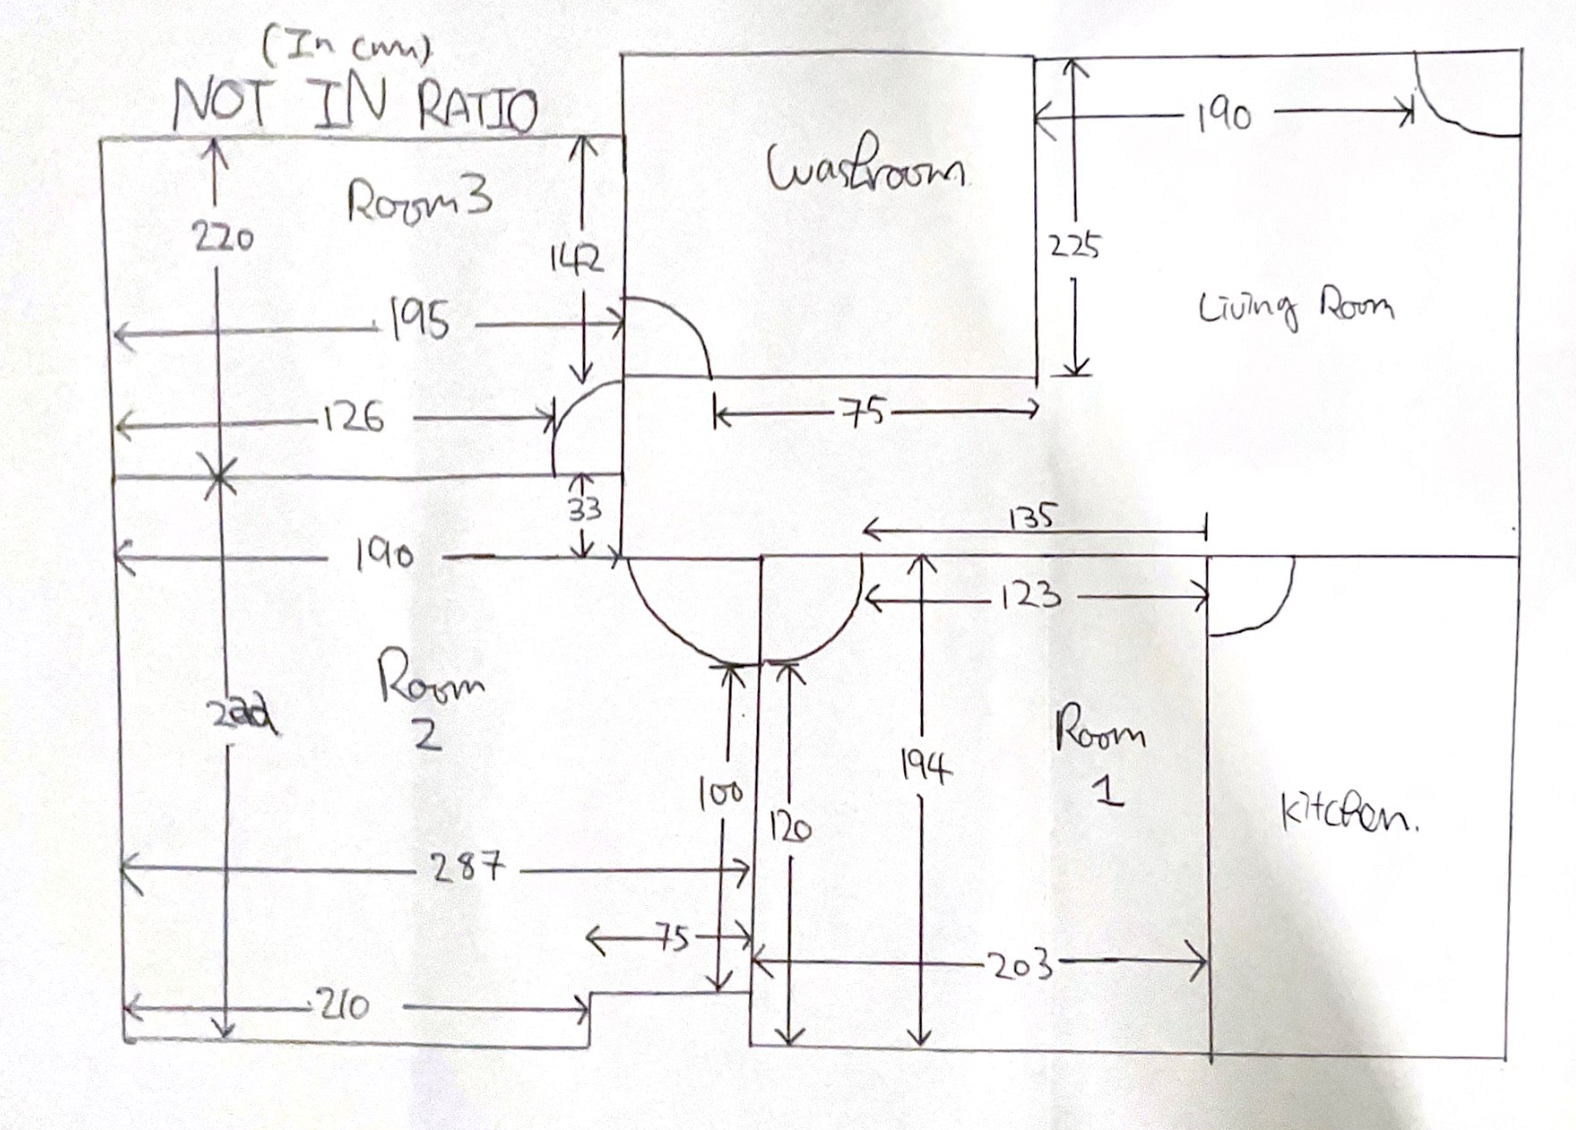 (In cm)
NOT IN RATIO
Room 3
220
142
195
126
33
190
Washroom
190
225
Living Room
75
135
123
Room
2
100
120
194
Room
1
Kitchen.
287
75
203
210